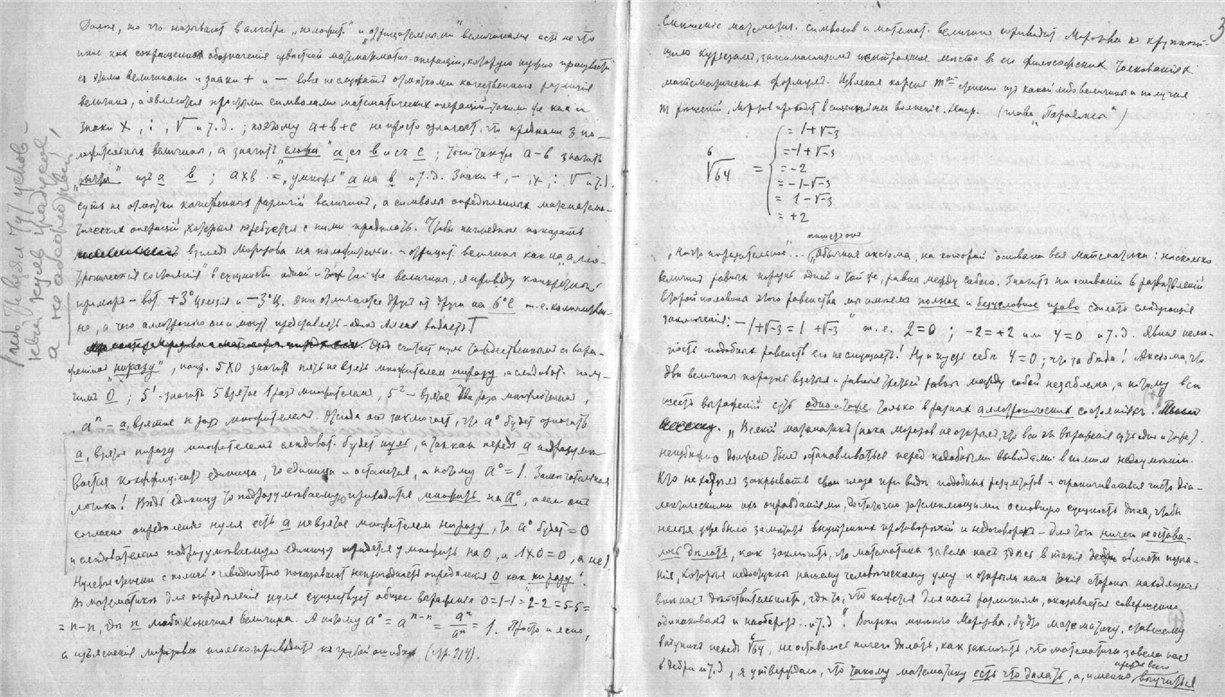 Далее, то что называют в алгебре "положит." и "отрицательными" величинами есть не что
иное как сокращенное обозначение известной математической операции, которую нужно произвести
с этими величинами и знаки + и — вовсе не служат отметками качественного различия
величин, а являются простыми символами математических операций таким же как и
знаки ×, :, √ и т.д.; поэтому a+b+c не просто означает, что
величины, а значит "сложи" a с b и с c; точно также a−b значит
"вычти" из a b; a×b = "умножь" a на b и т.д. Знаки +, −, ×, :, √ и т.д.
суть не отметки качественных различий величин, а символы определенных математи-
ческих операций которые требуется с ними проделать. Чтобы нагляднее показать
взгляд Морозова на положительн. - отрицат. величины как на "алло-
тропические состояния" в сущности одной и той же величины, я приведу конкретный
пример - вот +3° Цельсия и −3° Ц. Они отличаются друг от друга на 6°C т.е. количествен-
но, а чего аллотропного они могут представлять - один Аллах ведает
Он считает нуль тождественным с выра-
жением "ни разу", напр. 5×0 значит пять не взять множителем ни разу, а следоват. полу-
чим 0; 5¹ - значит 5 взятое 1 раз множителем, 5² - взятое два раза множителем,
aⁿ = a, взятое n раз множителем. Отсюда он заключает, что a⁰ будет означать
a, взятое ни разу множителем следоват. будет нуль, а так как перед a подразуме-
вается коэффициент единица, то единица и останется, а потому a⁰ = 1. Замечательная
логика! Ведь единицу то подразумеваемую приходится множить на a⁰, а если он
согласно определению нуля есть a не взятое множителем ни разу, то a⁰ будет = 0
и следовательно подразумеваемую единицу придется умножить на 0, а 1×0=0, а не 1
Нулевые степени с полной очевидностью показывают непригодность определения 0 как "ни разу".
В математике для определения нуля существует общее выражение 0=1−1=2−2=5−5=
= n−n, где n любая конечная величина. А потому a⁰ = aⁿ⁻ⁿ = aⁿ/aⁿ = 1. Просто и ясно,
а изъяснения Морозова только приводят к грубой ошибке (стр. 214).
либо 7° взяли
а не
3
Смешение математич. символов и математ. величин приводит Морозова к крупней-
шим курьезам, занимающим в его философских толкованиях
математических формул. Извлекая корень mой степени из какой либо величины и получая
m решений, Морозов приходит в волнение. Напр. (глава "Параллели")
⁶√64 = { = 1+√−3
= −1+√−3
= −2
= −1−√−3
= 1−√−3
= +2
аксиома, на которой основана вся математика: несколько
величин равных порознь одной и той же, равны между собою. Значит на основании 6 разветвлений
второй половины этого равенства мы имеем полное и безусловное право сделать следующие
заключения: −1+√−3 = 1+√−3" т.е. 2=0; −2=+2 или 4=0 и т.д. Явная неле-
пость подобных равенств его не смущает! Ну и пусть себе 4=0; что за беда! Аксиома, что
две величины порознь взятые и равные третьей равны между собой незыблема, а потому все
шесть выражений суть одно и то же, только в разных аллотропических состояниях.
"Всякий математик (пока Морозов не открыл, что все эти выражения суть одно и то же)
неизбежно должен был останавливаться перед подобными выводами в полном недоумении.
Кто не хотел закрывать свои глаза при виде подобных результатов - ограничиваться чисто диа-
лектическими их оправданиями, достаточно затемняющими основную сущность дела, чтобы
нельзя уже было заметить внутренних противоречий и недоговорок - для того ничего не остава-
лось делать, как заключить, что математика завела нас здесь в такие области позна-
ния, которые недоступны нашему человеческому уму и открыла нам такие стороны находящейся
вне нас действительности, где то, что кажется для нас различным, оказывается совершенно
одинаковым и наоборот... и т.д." Вопреки мнению Морозова, будто математику, ставшему
втупик перед ⁶√64, не оставалось ничего делать, как заключить, что математика завела нас
в дебри и т.д., я утверждаю, что такому математику есть что делать, а, именно прежде всего выучиться